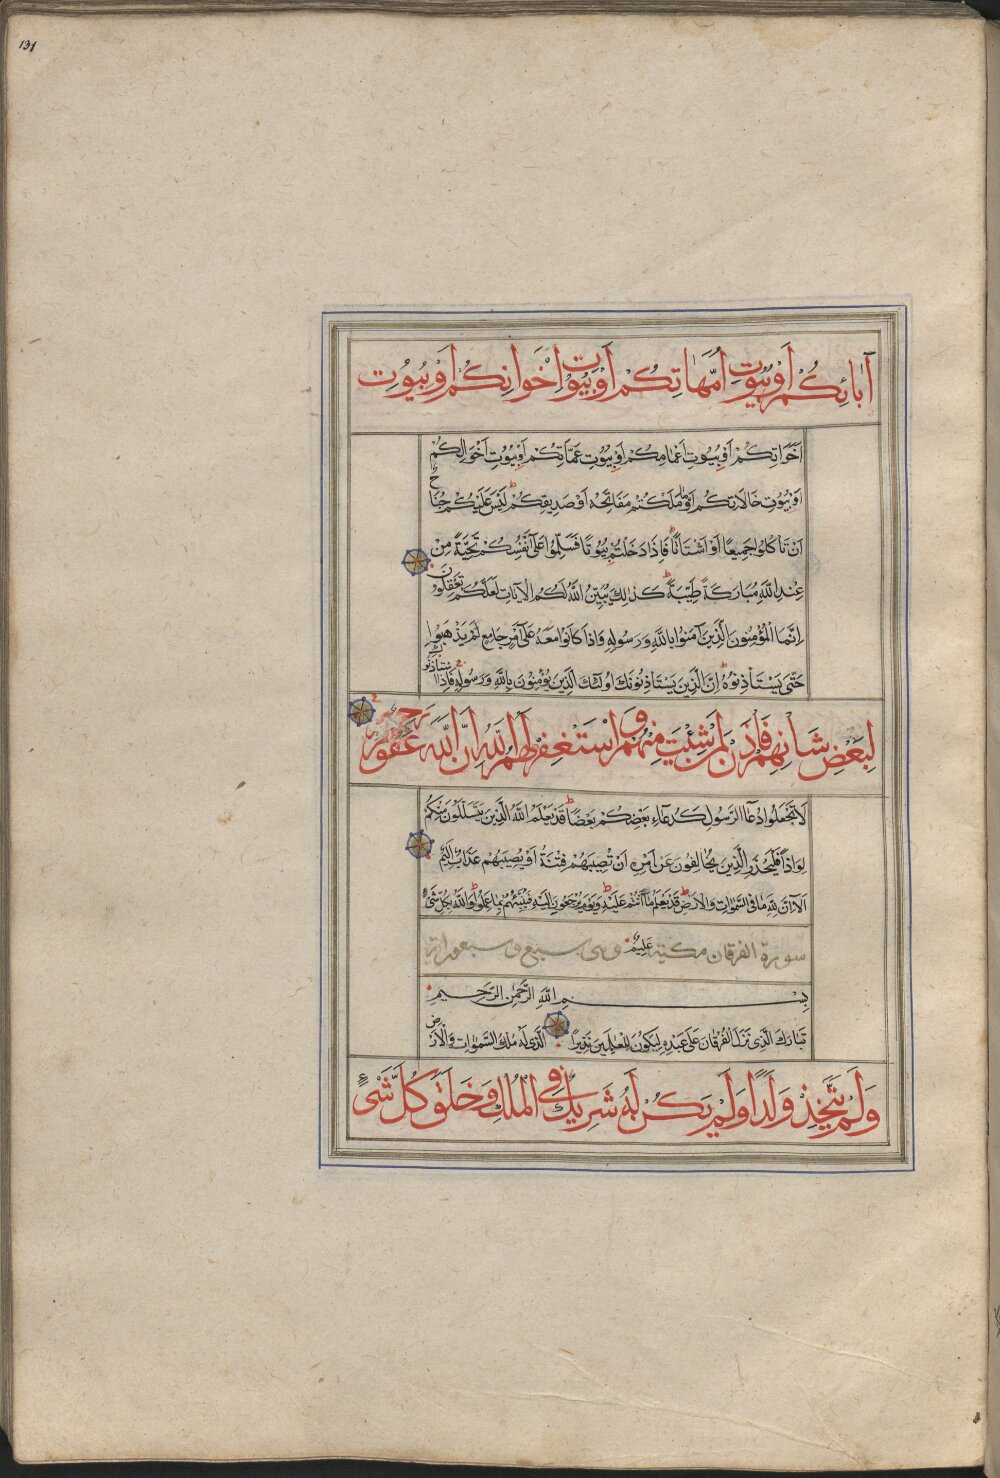 131
آبَائِكُمْ أَوْ بُيُوتِ أُمَّهَاتِكُمْ أَوْ بُيُوتِ إِخْوَانِكُمْ أَوْ بُيُوتِ
أَخَوَاتِكُمْ أَوْ بُيُوتِ أَعْمَامِكُمْ أَوْ بُيُوتِ عَمَّاتِكُمْ أَوْ بُيُوتِ أَخْوَالِكُمْ
أَوْ بُيُوتِ خَالَاتِكُمْ أَوْ مَا مَلَكْتُمْ مَفَاتِحَهُ أَوْ صَدِيقِكُمْ ط لَيْسَ عَلَيْكُمْ جُنَاح
أَنْ تَأْكُلُوا جَمِيعًا أَوْ أَشْتَاتًا ط فَإِذَا دَخَلْتُمْ بُيُوتًا فَسَلِّمُوا عَلَى أَنْفُسِكُمْ تَحِيَّةً مِنْ
عِنْدِ اللَّهِ مُبَارَكَةً طَيِّبَةً ط كَذَلِكَ يُبَيِّنُ اللَّهُ لَكُمُ الْآيَاتِ لَعَلَّكُمْ تَعْقِلُونَ
إِنَّمَا الْمُؤْمِنُونَ الَّذِينَ آمَنُوا بِاللَّهِ وَرَسُولِهِ وَإِذَا كَانُوا مَعَهُ عَلَى أَمْرٍ جَامِعٍ لَمْ يَذْهَبُوا
حَتَّى يَسْتَأْذِنُوهُ ط إِنَّ الَّذِينَ يَسْتَأْذِنُونَكَ أُولَئِكَ الَّذِينَ يُؤْمِنُونَ بِاللَّهِ وَرَسُولِهِ فَإِذَا اسْتَأْذَنُوكَ
لِبَعْضِ شَأْنِهِمْ فَأْذَنْ لِمَنْ شِئْتَ مِنْهُمْ وَاسْتَغْفِرْ لَهُمُ اللَّهَ إِنَّ اللَّهَ غَفُورٌ رَحِيمٌ
لَا تَجْعَلُوا دُعَاءَ الرَّسُولِ كَدُعَاءِ بَعْضِكُمْ بَعْضًا ط قَدْ يَعْلَمُ اللَّهُ الَّذِينَ يَتَسَلَّلُونَ مِنْكُمْ
لِوَاذًا فَلْيَحْذَرِ الَّذِينَ يُخَالِفُونَ عَنْ أَمْرِهِ أَنْ تُصِيبَهُمْ فِتْنَةٌ أَوْ يُصِيبَهُمْ عَذَابٌ أَلِيمٌ
أَلَا إِنَّ لِلَّهِ مَا فِي السَّمَوَاتِ وَالْأَرْضِ ط قَدْ يَعْلَمُ مَا أَنْتُمْ عَلَيْهِ ط وَيَوْمَ يُرْجَعُونَ إِلَيْهِ فَيُنَبِّئُهُمْ بِمَا عَمِلُوا ط وَاللَّهُ بِكُلِّ شَيْءٍ
عَلِيمٌ
سورة الفرقان مكية وهي سبع و سبعون اية
بِسْمِ اللَّهِ الرَّحْمَنِ الرَّحِيمِ
تَبَارَكَ الَّذِي نَزَّلَ الْفُرْقَانَ عَلَى عَبْدِهِ لِيَكُونَ لِلْعَالَمِينَ نَذِيرًا الَّذِي لَهُ مُلْكُ السَّمَوَاتِ وَالْأَرْضِ
وَلَمْ يَتَّخِذْ وَلَدًا وَلَمْ يَكُنْ لَهُ شَرِيكٌ فِي الْمُلْكِ وَخَلَقَ كُلَّ شَيْءٍ